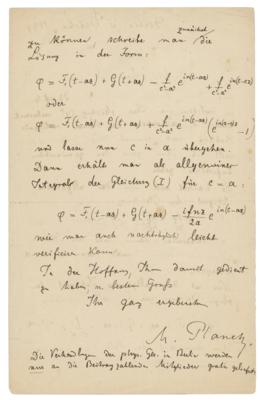 zunächst
zu können schreibe man die
Lösung in der Form:
φ = F(t-az) + G(t+az) - f/(c²-a²) e^{in(t-az)} + f/(c²-a²) e^{in(t-cz)}
oder
φ = F(t-az) + G(t+az) + f/(c²-a²) e^{in(t-az)} (e^{in(a-c)z} - 1)
und lasse nun c in a übergehen.
Dann erhält man als allgemeines
Integral der Gleichung (I) für c = a:
φ = F(t-az) + G(t+az) - ifnz/2a e^{in(t-az)}
wie man auch nachträglich leicht
verifizieren kann.
In der Hoffnung, Ihnen damit gedient
zu haben, m. bestem Gruß
Ihr ganz ergebener
M. Planck.
Die Verhandlungen der phys. Ges. in Berlin werden
nur an die Beitrag zahlenden Mitglieder gratis geliefert.